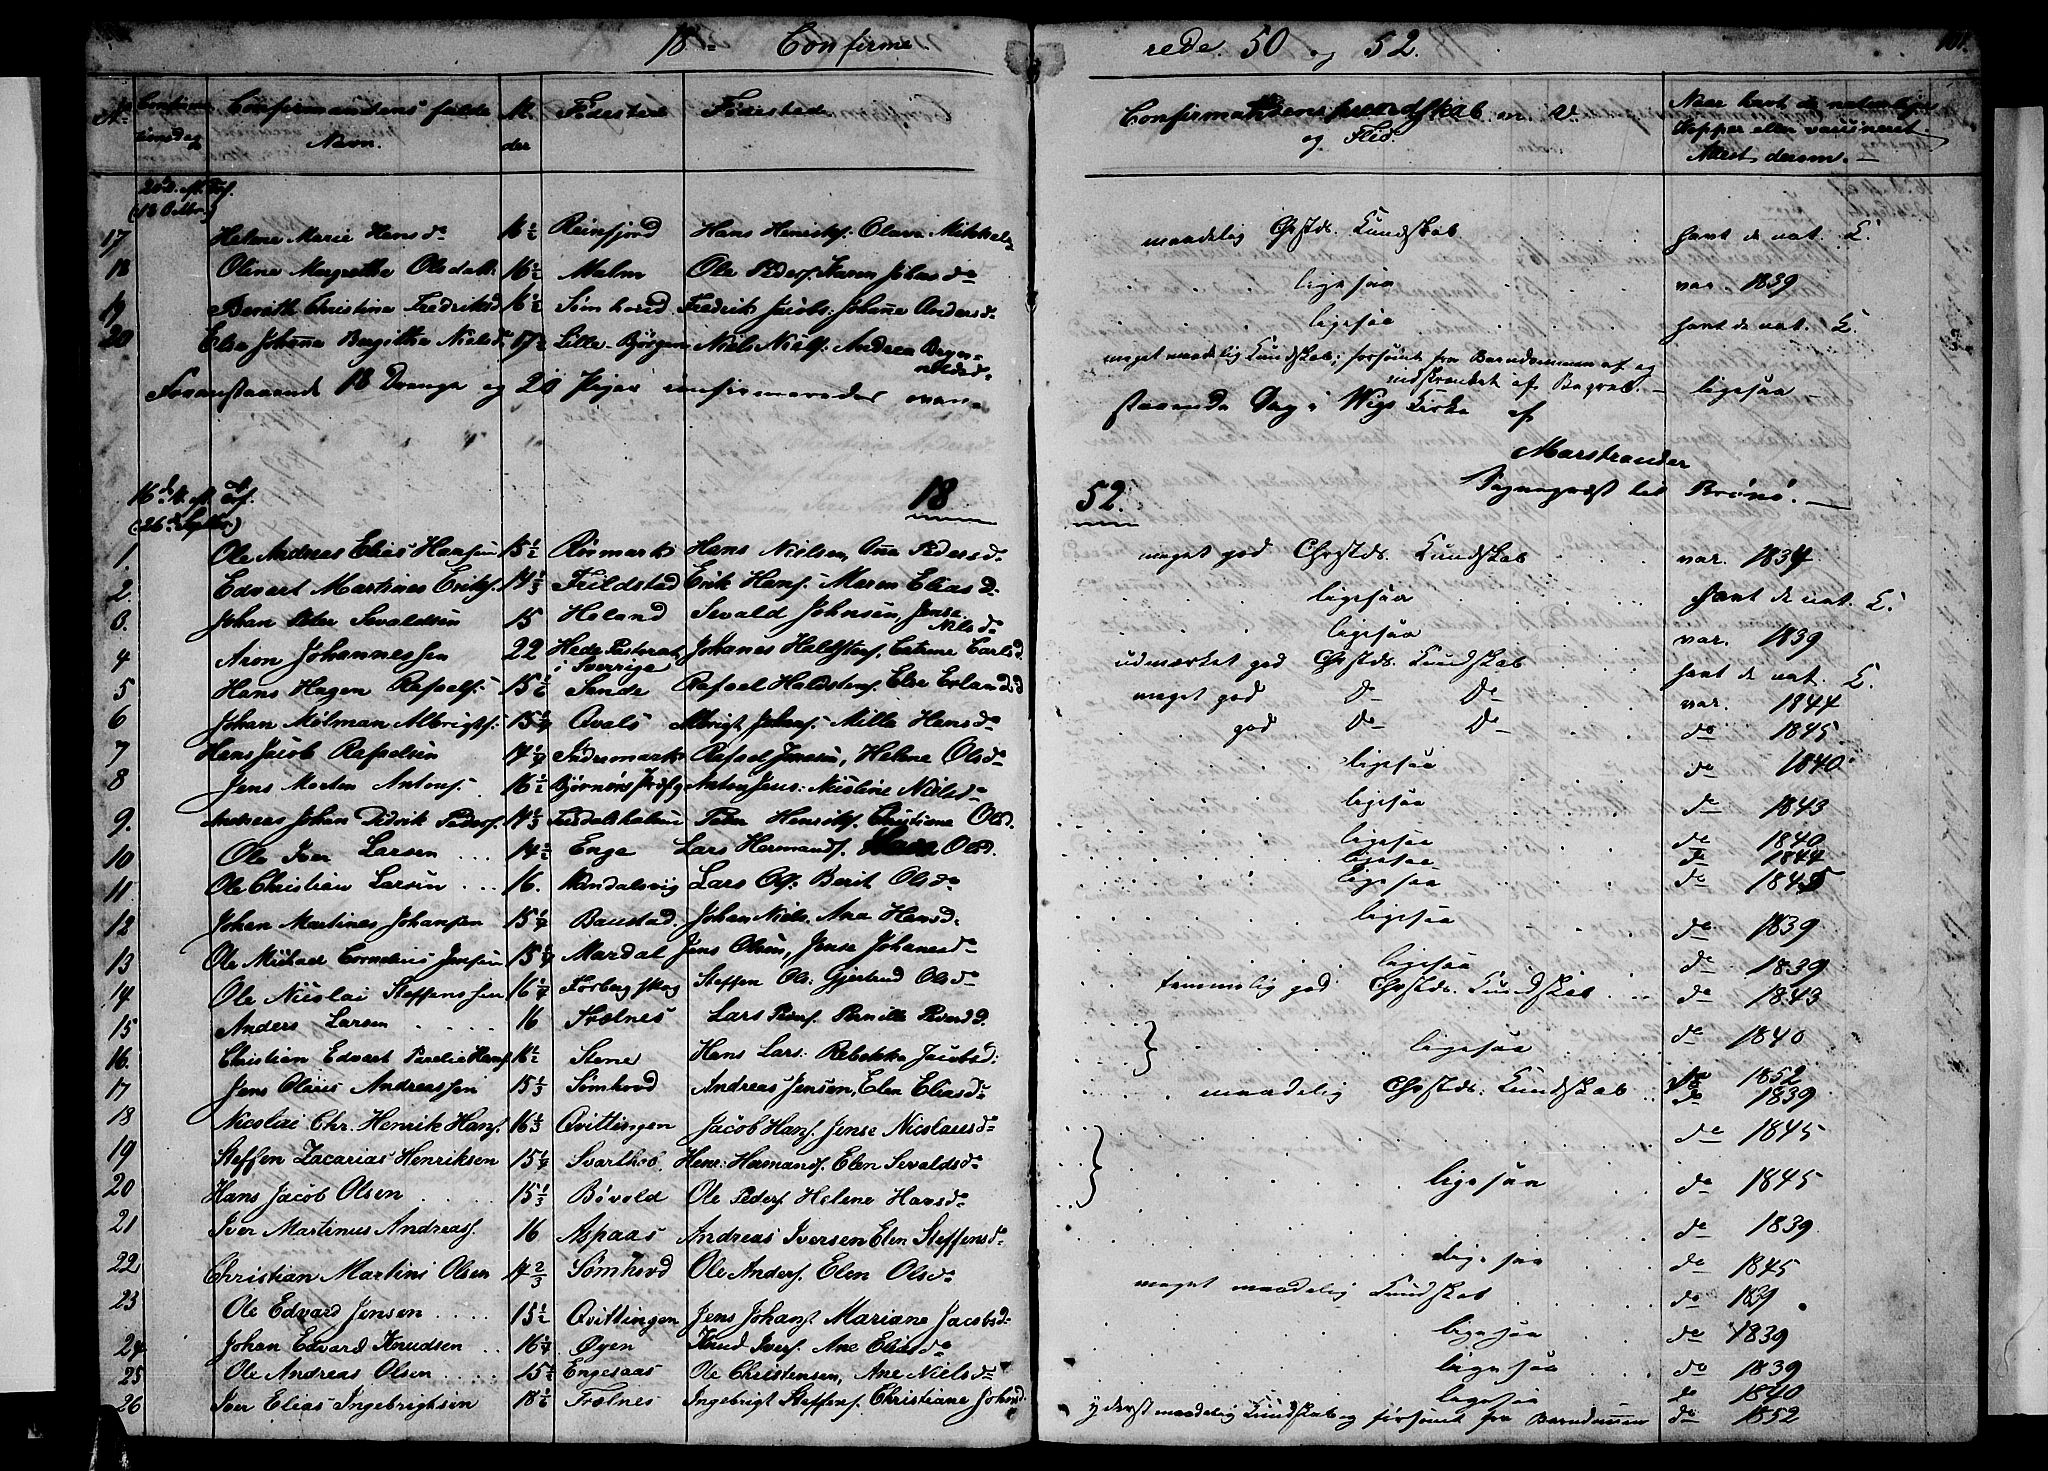 18 Confirme rede. 50 og 52. 101.
No Confirmationsdag Confirmandens fulde Navn. Alder Fødested Fødested. Confirmandens Kundskab m. V. og Flid. Naar havt de naturlige Kopper eller vaccineret. Attest derom.
(18 Octbr.)
17 Helene Marie Hansd. 16½ Reinfjord Hans Henriks. Olava Mikkelsd. maadelig Chrstds. Kundskab havt de nat. K.
18 Olina Margretha Olsdatt. 16½ Malm Ole Peders. Karen Johnsdr ligesaa vac. 1839
19 Bereth Christina Fredriksd. 16½ Sømhovd Fredrik Jacobs. Johana Andersdr ligesaa havt de nat. K.
20 Elen Johanna Birgitha Nielsd. 17½ Lille Børgen Niels Niels. Andrea meget maadelig Kundskab; forsømt fra Barndommen af og indskrænket af Begreb. ligesaa
Foranstaaende 18 Drenge og 20 Piger confirmeredes ovenstaaende Dag i Wigs Kirke af
Marstrander
Sognepræst til Brønø.
18 52.
(26 Septbr.)
1. Ole Andreas Elias Hansen 15½ Rørmark Hans Nielsen, Ane Pedersdr meget god Chrstds. Kundskab vac. 1834
2. Edvart Martines Eriks. 14⅓ Fieldstad Erik Hans. Maren Eliasd. ligesaa havt de nat. K.
3. Johan Peter Sevaldsen 15 Heland Sevald Johnsen, Jense Nilsdr ligesaa vac. 1839
4 Aron Johannessen 22 Hede Pastorat i Sverrige Johanes Heldstens. Catrine Carlsd. udmærket god Chrstds. Kundskab havt de nat. K.
5 Hans Hagen Rafaels. 15½ Sande Rafael Haldstens. Else Erlandsd meget god Do Do vac. 1844
6 Johan Mølman Albrigts. 15¼ Qvals Albrigt Johans. Mille Hansdr god Do Do do 1845
7 Hans Jacob Rafaelsen 17¼ Indermark Rafael Jensen, Helene Olsdr ligesaa do 1840
8 Jens Morten Antons. 16½ Bjørnørs Prstg Anton Jens: Nicoline Nielsdr ligesaa do 1843
9. Andreas Johan Didrik Peders. 14⅓ Peter Henriks. Christiane Olsd. ligesaa do 1840
10 Ole Iver Larsen 14½ Enge Lars Hermands. Olsd. ligesaa do 1844
11 Ole Christian Larsen 16. Nordalsvig Lars Ols. Berit Olsdr ligesaa do 1845
12 Johan Martines Johansen 15¼ Baustad Johan Niels. Ane Hansd. ligesaa do 1839
13 Ole Michael Cornelius Jensen 15¼ Mardal Jens Olsen, Jense Johanesdr ligesaa do 1839
14 Ole Nicolai Steffenssen 16¼ Forbergskog Steffen Ols. Gjertrud Olsdr temmelig god Chrstds. Kundskab do 1843
15 Anders Larsen 16 Trælnes Lars Peders. Pernille Pedersd. do 1840
16. Christian Edvart Parelie Hans. 16½ Stene Hans Lars: Rebekka Jacobsd: ligesaa do 1852
17 Jens Olaus Andreassen 15⅓ Sømhovd Andreas Jensen, Elen Eliasdr maadelig Chrstds. Kundskab do 1839
18 Nicolai Chr. Henrik Hans. 16⅓ Qvittingen Jacob Hans. Jense Nicolausdr do 1845
19 Steffen Zacarias Henriksen 15¼ Svarthob. Henr: Hermands. Elen Sevaldsdr ligesaa do 1845
20 Hans Jacob Olsen 15⅓ Bøvold Ole Peders. Helene Hansdr
21 Iver Martinus Andreas. 16 Aspaas Andreas Iversen Elen Steffensdr do 1839
22 Christian Martins Olsen 14⅔ Sømhovd Ole Anders. Elen Olsdr ligesaa do 1845
23 Ole Edvard Jensen 15½ Qvittingen Jens Johans. Mariane Jacobsdr meget maadelig Kundskab do 1839
24 Johan Edvard Knudsen 16¼ Øyen Knud Ivers. Ane Eliasdr ligesaa do 1839
25 Ole Andreas Olsen 15½ Engesaas Ole Christensen, Ane Nielsdr ligesaa do 1839
ligesaa do 1840
26 Iver Elias Ingebrigtsen 18½ Trælnes Ingebrigt Steffens. Christiane Johansd. yderst maadelig Kundskab og forsømt fra Barndommen do 1852